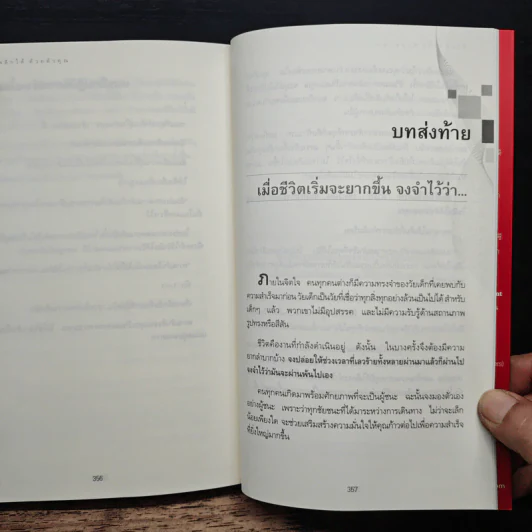 บทส่งท้าย
เมื่อชีวิตเริ่มจะยากขึ้น จงจำไว้ว่า...
ภายในจิตใจ คนทุกคนต่างก็มีความทรงจำของวัยเด็กที่เคยพบกับ
ความสำเร็จมาก่อน วัยเด็กเป็นวัยที่เชื่อว่าทุกสิ่งทุกอย่างล้วนเป็นไปได้ สำหรับ
เด็กๆ แล้ว พวกเขาไม่มีอุปสรรค และไม่มีความรับรู้ด้านสถานภาพ
รูปทรงหรือสีสัน
ชีวิตคืองานที่กำลังดำเนินอยู่ ดังนั้น ในบางครั้งจึงต้องมีความ
ยากลำบากบ้าง จงปล่อยให้ช่วงเวลาที่เลวร้ายทั้งหลายผ่านมาแล้วก็ผ่านไป
จงจำไว้ว่ามันจะผ่านพ้นไปเอง
คนทุกคนเกิดมาพร้อมศักยภาพที่จะเป็นผู้ชนะ ฉะนั้นจงมองตัวเอง
อย่างผู้ชนะ เพราะว่าทุกชัยชนะที่ได้มาระหว่างการเดินทาง ไม่ว่าจะเล็ก
น้อยเพียงใด จะช่วยเสริมสร้างความมั่นใจให้คุณก้าวต่อไปเพื่อความสำเร็จ
ที่ยิ่งใหญ่มากขึ้น
356
357